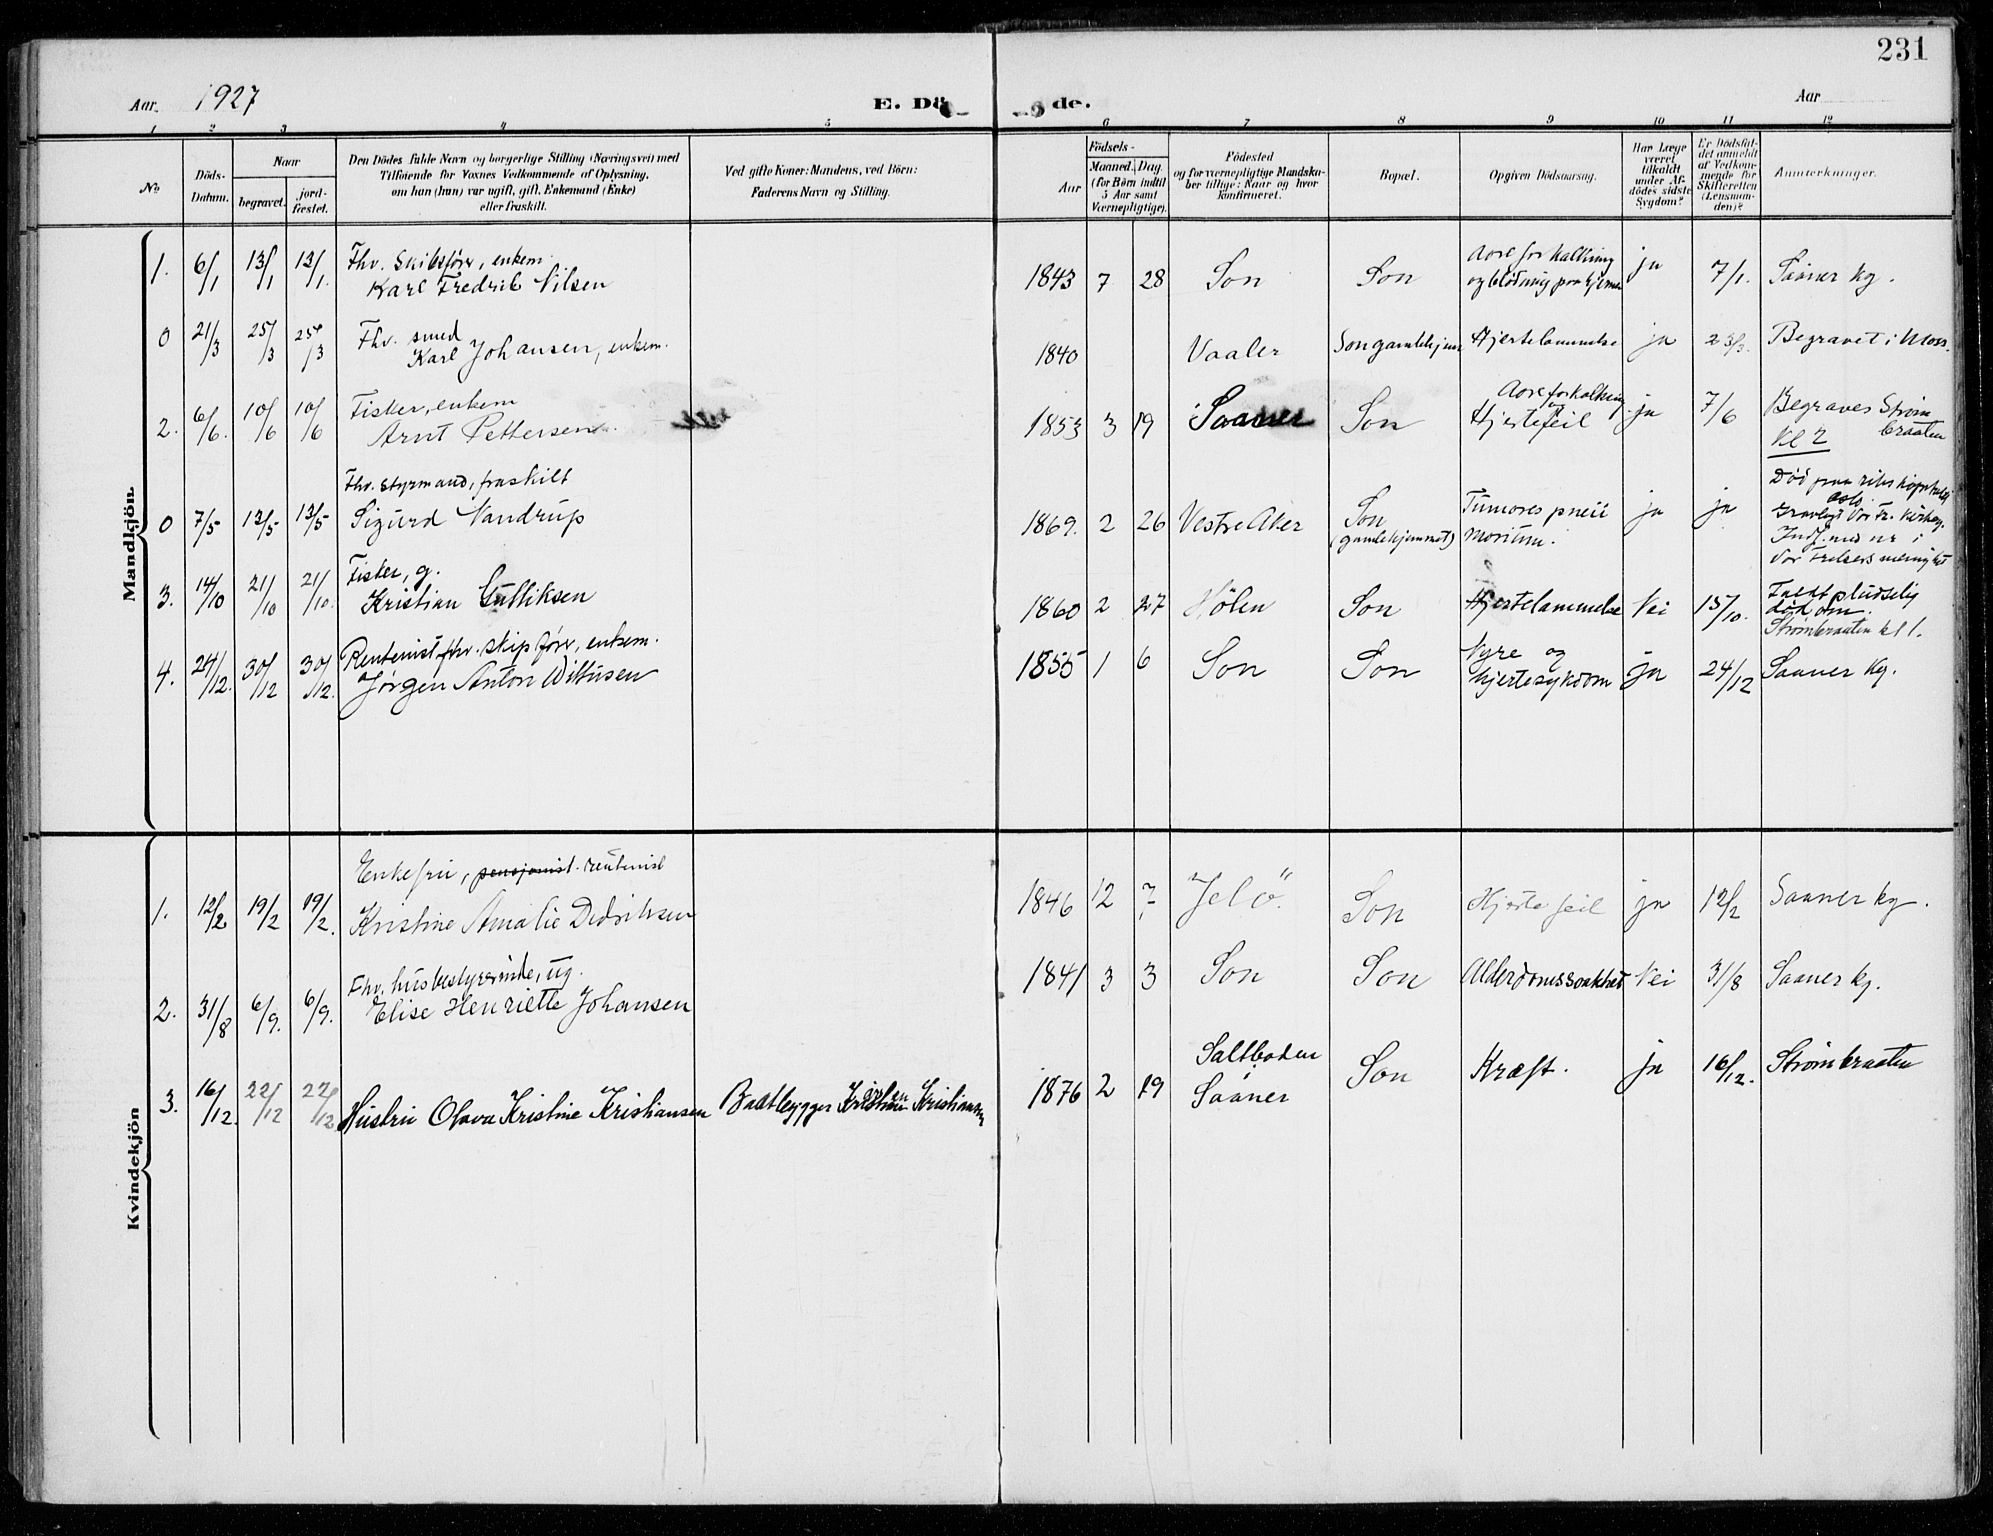 231
Aar 1927 E. Dö de. Aar
1 2 3 4 5 6 7 8 9 10 11 12
No
Döds-Datum.
Naar
begravet.
jord-fæstet.
Den Dödes fulde Navn og borgerlige Stilling (Næringsvei) med
Tilföiende for Voxnes Vedkommende af Oplysning,
om han (hun) var ugift, gift, Enkemand (Enke)
eller fraskilt.
Ved gifte Koner: Mandens, ved Börn:
Faderens Navn og Stilling.
Födsels-
Aar
Maaned. Dag
(for Börn indtil
5 Aar samt
Værnepligtige).
Födested
og for værnepligtige Mandska-
ber tillige: Naar og hvor
konfirmeret.
Bopæl.
Opgiven Dödsaarsag.
Har Læge
været
tilkaldt
under Af-
dödes sidste
Sygdom?
Er Dödsfal-
det anmeldt
af Vedkom-
mende for
Skifteretten
(Lensman-
den)?
Anmærkninger.
Mandkjön.
Fhv. Skibsfører, enkem.
1. 6/1 13/1 13/1 Karl Fredrik Nilsen 1843 7 28 Son Son Aareforkalkning og blødning paa hjernen ja 7/1. Saaner kg.
Fhv. smed
0 21/3 25/3 25/3 Karl Johansen, enkem. 1840 Vaaler Son gamlehjem Hjertelammelse ja 23/3. Begravet i Moss.
Fisker, enkem
2. 6/6. 10/6 10/6 Arnt Pettersen. 1853 3 19 Saaner Son Aareforkalkning Hjertefeil ja 7/6 Begraves Strømbraaten
Kl 2
Fhv. styrmand, fraskilt
0 7/5 13/5 13/5 Sigurd Nandrup 1869. 2 26 Vestre Aker Son (gamlehjemmet) Tumores ja ja Død paa rikshospitalet
Oslo.
Gravlagt Vor Fr. Kirkeg.
Indf. med nr i
Vor Frelsers menighet
Fisker, g.
3. 14/10 21/10 21/10. Kristian Gulliksen 1860 2 27 Hølen Son Hjertelammelse Nei 15/10. Faldt pludselig
død om.
Strømbraaten kl 1.
Rentenist fhv. skipsfører, enkem.
4. 24/12. 30/12 30/12. Jørgen Anton Wittusen 1855 1 6 Son Son Nyre og hjertesykdom ja 24/12 Saaner kg.
Kvindekjön
Enkefru, pensjonist. rentenist
1. 12/2 19/2 19/2. Kristine Amalie Dedriksen 1846 12 7 Jelö. Son Hjertefeil ja 12/2 Saaner kg.
Fhv. husbestyrerinde, ug.
2. 31/8 6/9. 6/9. Elise Henriette Johansen 1841 3 3 Son Son Alderdomssvakhet Nei 31/8 Saaner kg.
3. 16/12. 22/12 22/12 Hustru Olava Kristine Kristiansen Baatbygger Kristian Kristiansen 1876 2 19 Saltboden
Saaner Son Kræft. ja 16/12. Strømbraaten